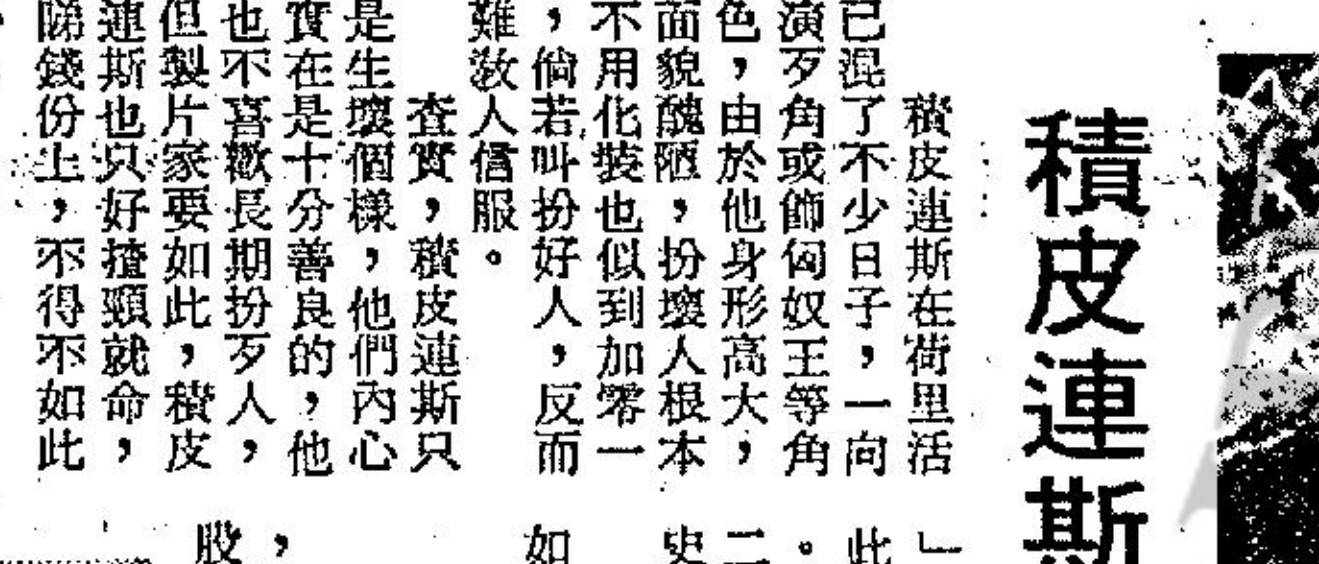 積皮連斯
積皮連斯在荷里活
已混了不少日子，一向
演歹角或飾匈奴王等角
色，由於他身形高大，
面貌醜陋，扮壞人根本
不用化裝也似到加零一
，倘若叫扮好人，反而
難敎人信服。
查實，積皮連斯只
是生壞個樣，他們內心
實在是十分善良的，他
也不喜歡長期扮歹人，
但製片家要如此，積皮
連斯也只好揸頸就命，
睇錢份上，不得不如此
」
此
。
二
史
如
，
股